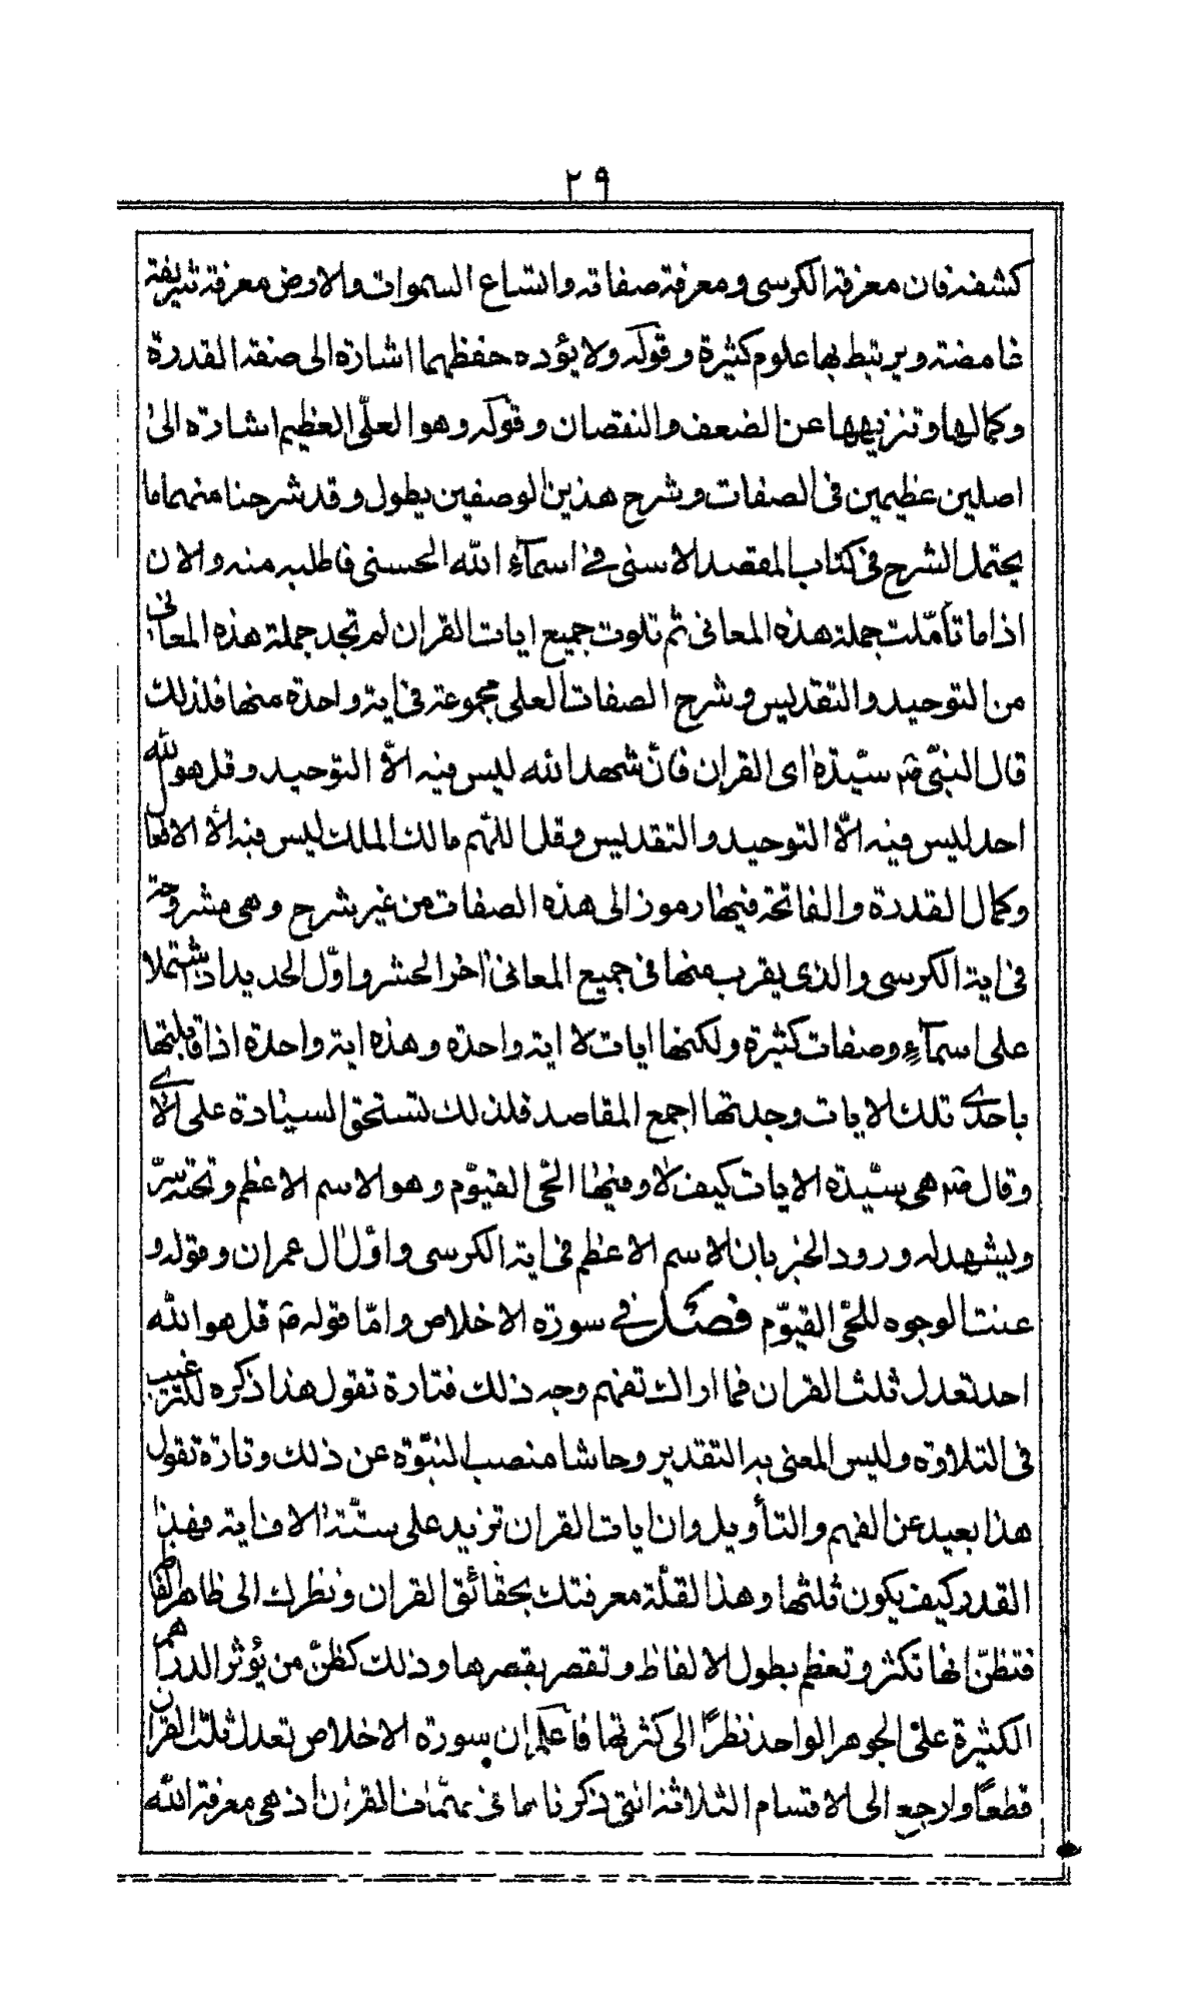 ٢٩
كشفنه فان معرفة الكرسى ومعرفة صفاته واتساع السموات والارض معرفة شريفة
غامضته ويرتبط بها علوم كثيرة وقوله ولا يؤده حفظهما اشارة الى صفة القدرة
وكمالها وتنزيهها عن الضعف والنقصان وقوله وهو العلّى العظيم اشارة الى
اصلين عظيمين فى الصفات وشرح هذين الوصفين يطول وقد شرحنا منهما ما
يحتمل الشرح فى كتاب المقصد الاسنى فى اسمآء الله الحسنى فاطلبه منه والان
اذا ما تأمّلت جملة هذه المعانى ثم تلوت جميع ايات القران لم تجد جملة هذه المعانى
من التوحيد والتقديس وشرح الصفات العلى مجموعة فى اية واحدة منها فلذلك
قال النبّى صم سيّدة اى القران فانّ شهد الله ليس فيه الّا التوحيد وقل هو الله
احد ليس فيه الّا التوحيد والتقديس وقل اللهم مالك الملك ليس فيه الّا الافعال
وكمال القدرة والفاتحة فيها رموز الى هذه الصفات من غير شرح وهى مشروحة
فى اية الكرسى والذى يقرب منها فى جميع المعانى اخر الحشر واوّل الحديد اذ اشتملا
على اسمآء وصفات كثيرة ولكنها ايات لا اية واحدة وهذه اية واحدة اذا قابلتها
باحدى تلك الايات وجدتها اجمع المقاصد فلذلك تستحق السيادة على الاى
وقال صم هى سيّدة الايات كيف لا وفيها الحّى القيوّم وهو الاسم الاعظم وتحته سرّ
ويشهد له ورود الخبر بان الاسم الاعظم فى اية الكرسى واوّل ال عمران وقوله و
عنت الوجوه للحّى القيوّم فصل فى سورة الاخلاص وامّا قوله صم قل هو الله
احد تعدل ثلث القران فما اراك تفهم وجه ذلك فتارة تقول هذا ذكره للترغيب
فى التلاوة وليس المعنى به التقدير وحاشا منصب النبّوة عن ذلك وتارة تقول
هذا بعيد عن الفهم والتأويل وان ايات القران تزيد على ستّة الاف اية فهذا
القدر كيف يكون ثلثها وهذا لقلّة معرفتك بحقائق القران ونظرك الى ظاهر الفاظه
فتظنّ انها تكثر وتعظم بطول الالفاظ وتقصر بقصرها وذلك كظنّ من يؤثر الدراهم
الكثيرة على الجوهر الواحد نظرًا الى كثرتها فاعلم ان سورة الاخلاص تعدل ثلث القران
قطعًا وارجع الى الاقسام الثلاثة التى ذكرناها فى مهمّات القران اذ هى معرفة الله